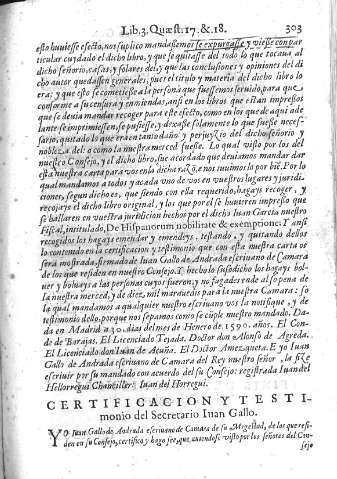 Lib.3. Quæst.17.&.18. 303
esto huuiesse efecto, nos suplico mandassemos se expurgasse, y viesse con par
ticular cuydado el dicho libro, y que se quitasse del todo lo que tocaua al
dicho señorio, casas, y solares del, y que las conclusiones y opiniones del di
cho autor quedassen generales, pues el titulo y materia del dicho libro lo
era: y que esto se cometiesse a la persona que fuessemos seruido, para que
conforme a su censura y enmiendas, ansi en los libros que estan impressos
que se deuia mandar recoger para este efecto, como en los que de aqui ade
lante se imprimiessen, se pusiesse, y dexasse solamente lo que fuesse neces-
sario, quitado lo que era en tanto daño y perjuyzio del dicho señorio y
nobleza del: o como la nuestra merced fuesse. Lo qual visto por los del
nuestro Consejo, y el dicho libro, fue acordado que deuiamos mandar dar
esta nuestra carta para vos en la dicha razõ, e nos tuuimoslo por biẽ. Por lo
qual mandamos a todos y a cada vno de vos en vuestros lugares y juridi-
ciones, segun dicho es, que siendo con ella requerido, hagays recoger, y
recojays el dicho libro original, y los que por el se huuieren impresso que
se hallaren en vuestra juridicion hechos por el dicho Iuan Garcia nuestro
Fiscal, intitulado, De Hispanorum nobilitate & exemptione: Y ansi
recogidos los hagays emendar y emendeys, testando, y quitando dellos
lo contenido en la certificacion y testimonio que con esta nuestra carta os
sera mostrada, firmada de Iuan Gallo de Andrada escriuano de Camara
de los que residen en nuestro Consejo. Y hecho lo susodicho los hagays bol-
uer y boluays a las personas cuyos fueren, y no fagades ende al so pena de
la nuestra merced, y de diez mil marauedis para la nuestra Camara: so
la qual mandamos a qualquier nuestro escriuano vos la notifique, y de
testimonio dello, porque nos sepamos como se cũple nuestro mandado. Da-
da en Madrid a 30. dias del mes de Henero de 1590. años. El Con-
de de Barajas. El Licenciado Tejada. Doctor don Alonso de Agreda.
El Licenciado don Iuan de Acuña. El Doctor Amezqueta. E yo Iuan
Gallo de Andrada escriuano de Camara del Rey nuestro señor, la fize
escriuir por su mandado con acuerdo de su Consejo: registrada Iuan del
Hellorregui Chanciller Iuan del Horregui.
CERTIFICACION Y TESTI-
monio del Secretario Iuan Gallo.
YO Iuan Gallo de Andrada escriuano de Camara de su Magestad, de los que resi-
den en su Consejo, certifico y hago fee, que, auiendosi visto por los señores del Con-
sejo